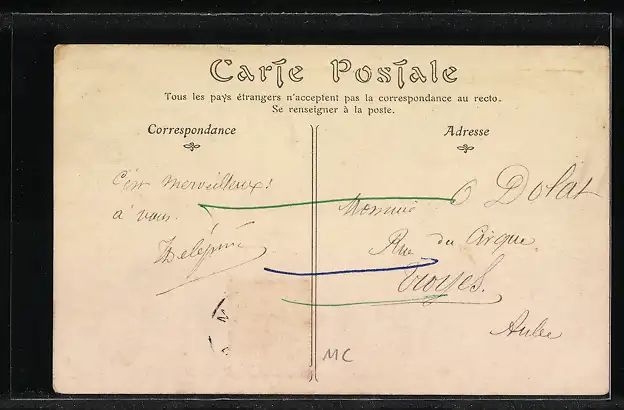 Carte Postale
Tous les pays étrangers n'acceptent pas la correspondance au recto.
Se renseigner à la poste.
Correspondance
C'est merveilleux!
à vous.
Delépine
Adresse
Monsieur O Dolat
Rue du Cirque
Troyes.
Aube
MC